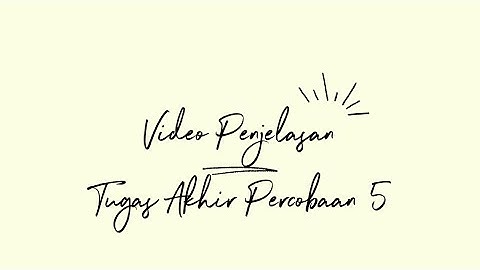 Video Penjelasan
Tugas Akhir Percobaan 5